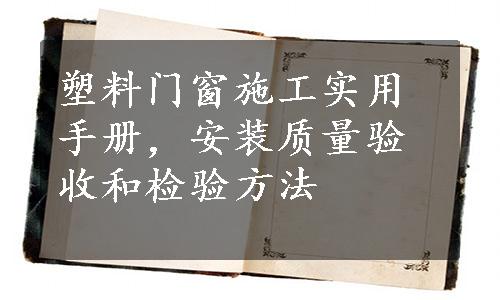 塑料门窗施工实用
手册，安装质量验
收和检验方法